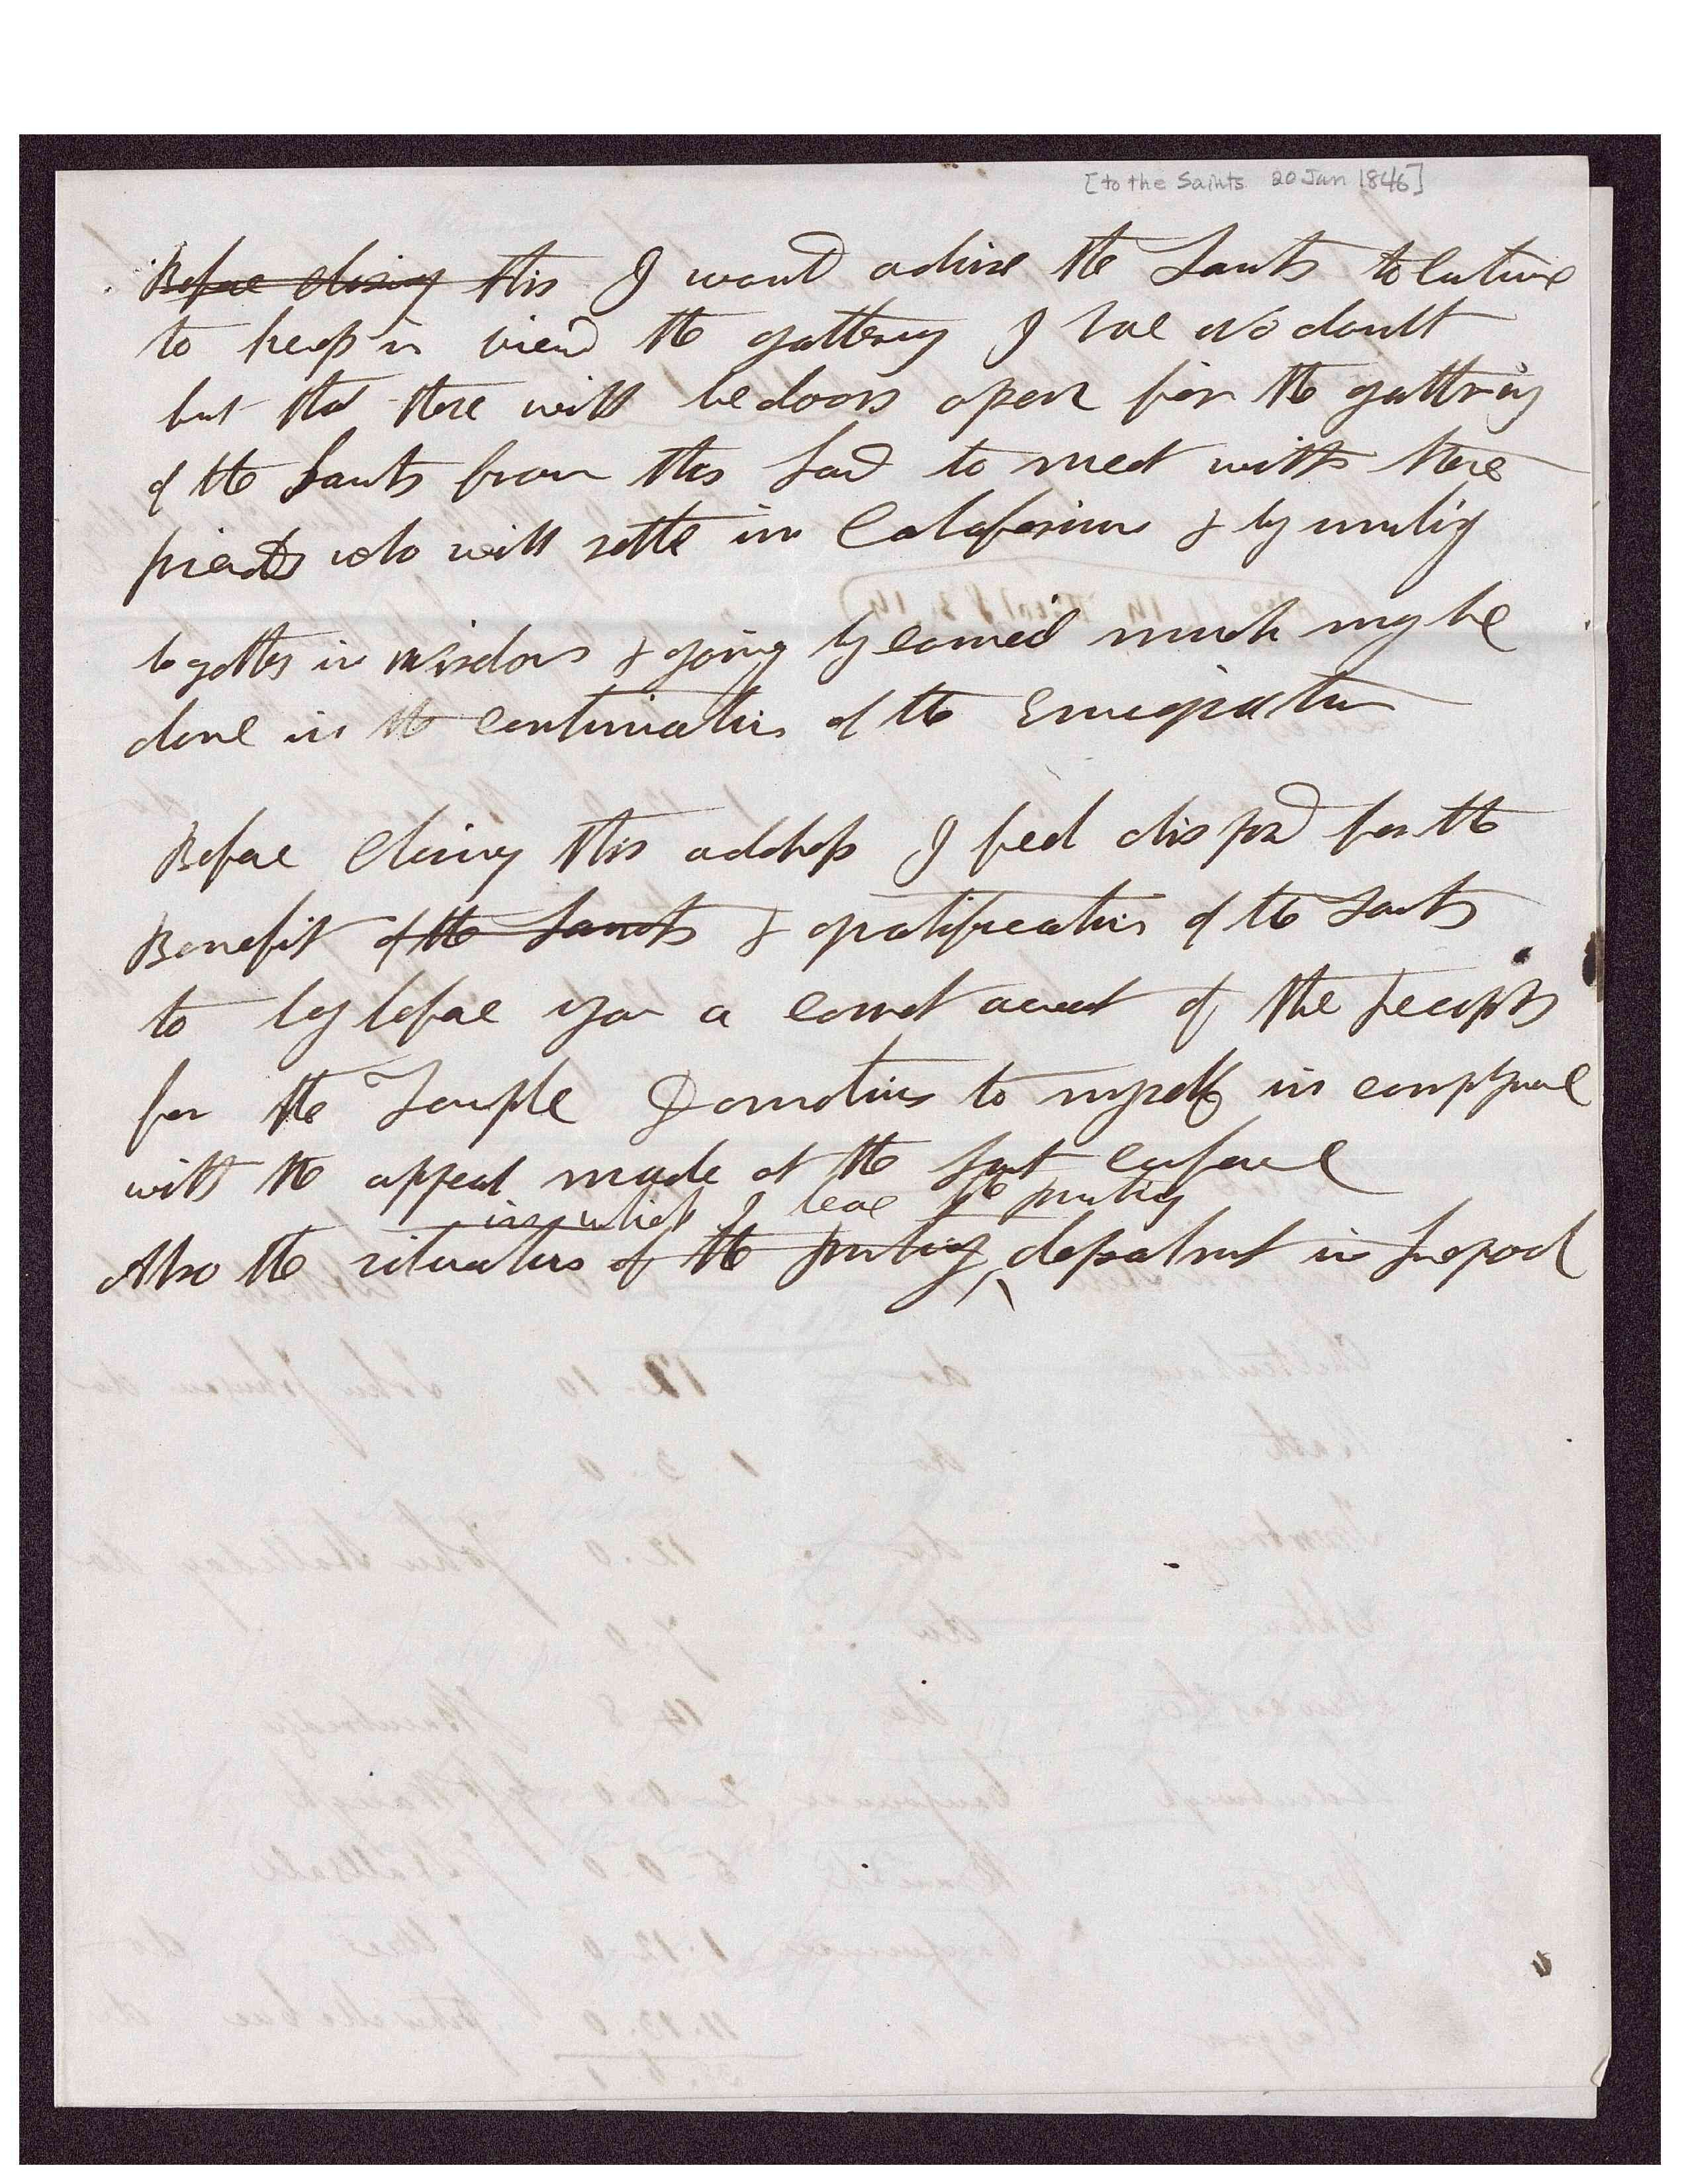 [to the Saints 20 Jan 1846]
Before closing this I would advise the Saints to
to keep in view the gathering I have No doubt
but that there will be doors open for the gathering
of the Saints from this Land to meet with there
friends who will settle in California & by uniting
togather in wisdom & going by council much may be
done in the continuation of the Emegration
Before closing this address I feel disposed for the
Benefit of the Saints & gratification of the Saints
to lay before you a correct account of the receipts
for the Temple & donations to myself in complyance
with the appeal made at the last conference
in which I leave the printing
Also the situation of the printing department in Liverpool